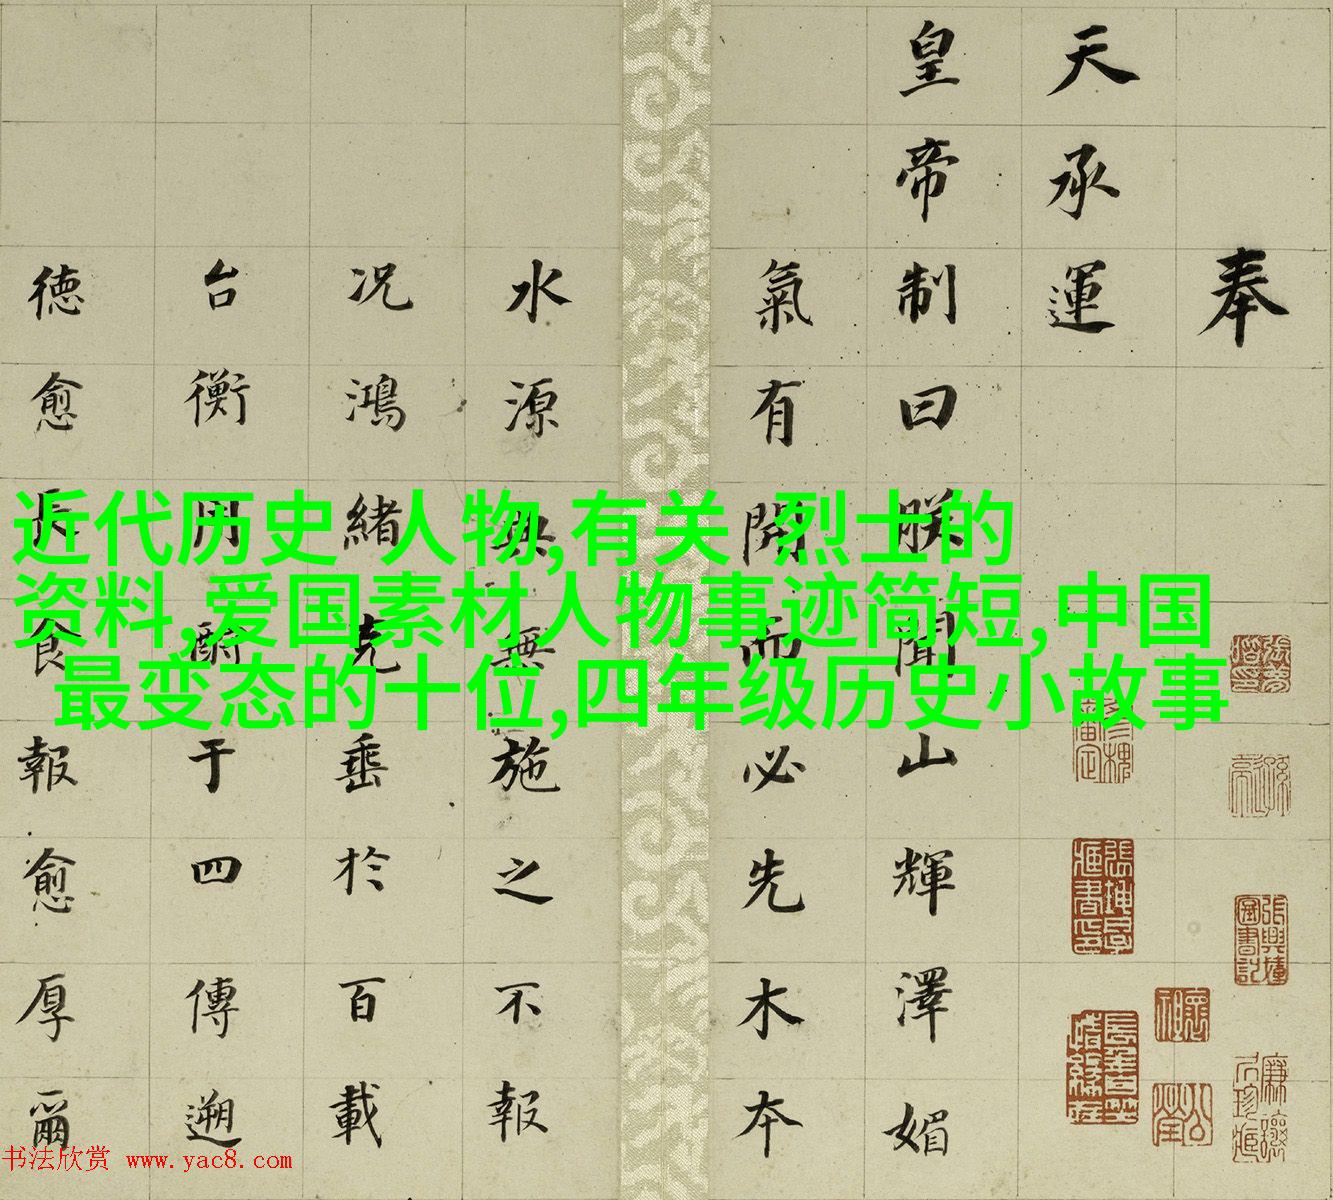 奉
天承運
皇帝制曰朕聞山輝澤媚
氣有開而必先木本
水源無施之不報
况鴻緒克垂於百載
台衡用酬于四傳遡
德愈長食報愈厚爾
近代历史 人物,有关 烈士的
资料,爱国素材人物事迹简短,中国
最变态的十位,四年级历史小故事
书法欣赏 www.yac8.com